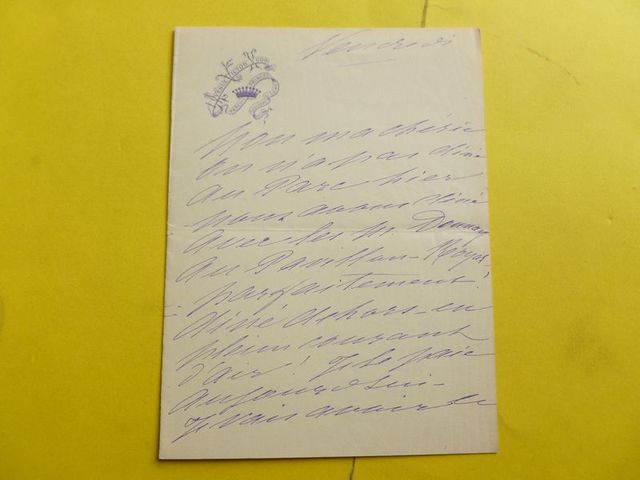 Vendredi
Non ma chérie
on n'a pas dîné
au Parc hier
nous avons dîné
avec les M. Donnay
au Pavillon-Royal
parfaitement!
dîné dehors en
plein courant
d'air! Je le paie
aujourd'hui-
Je vais avoir le